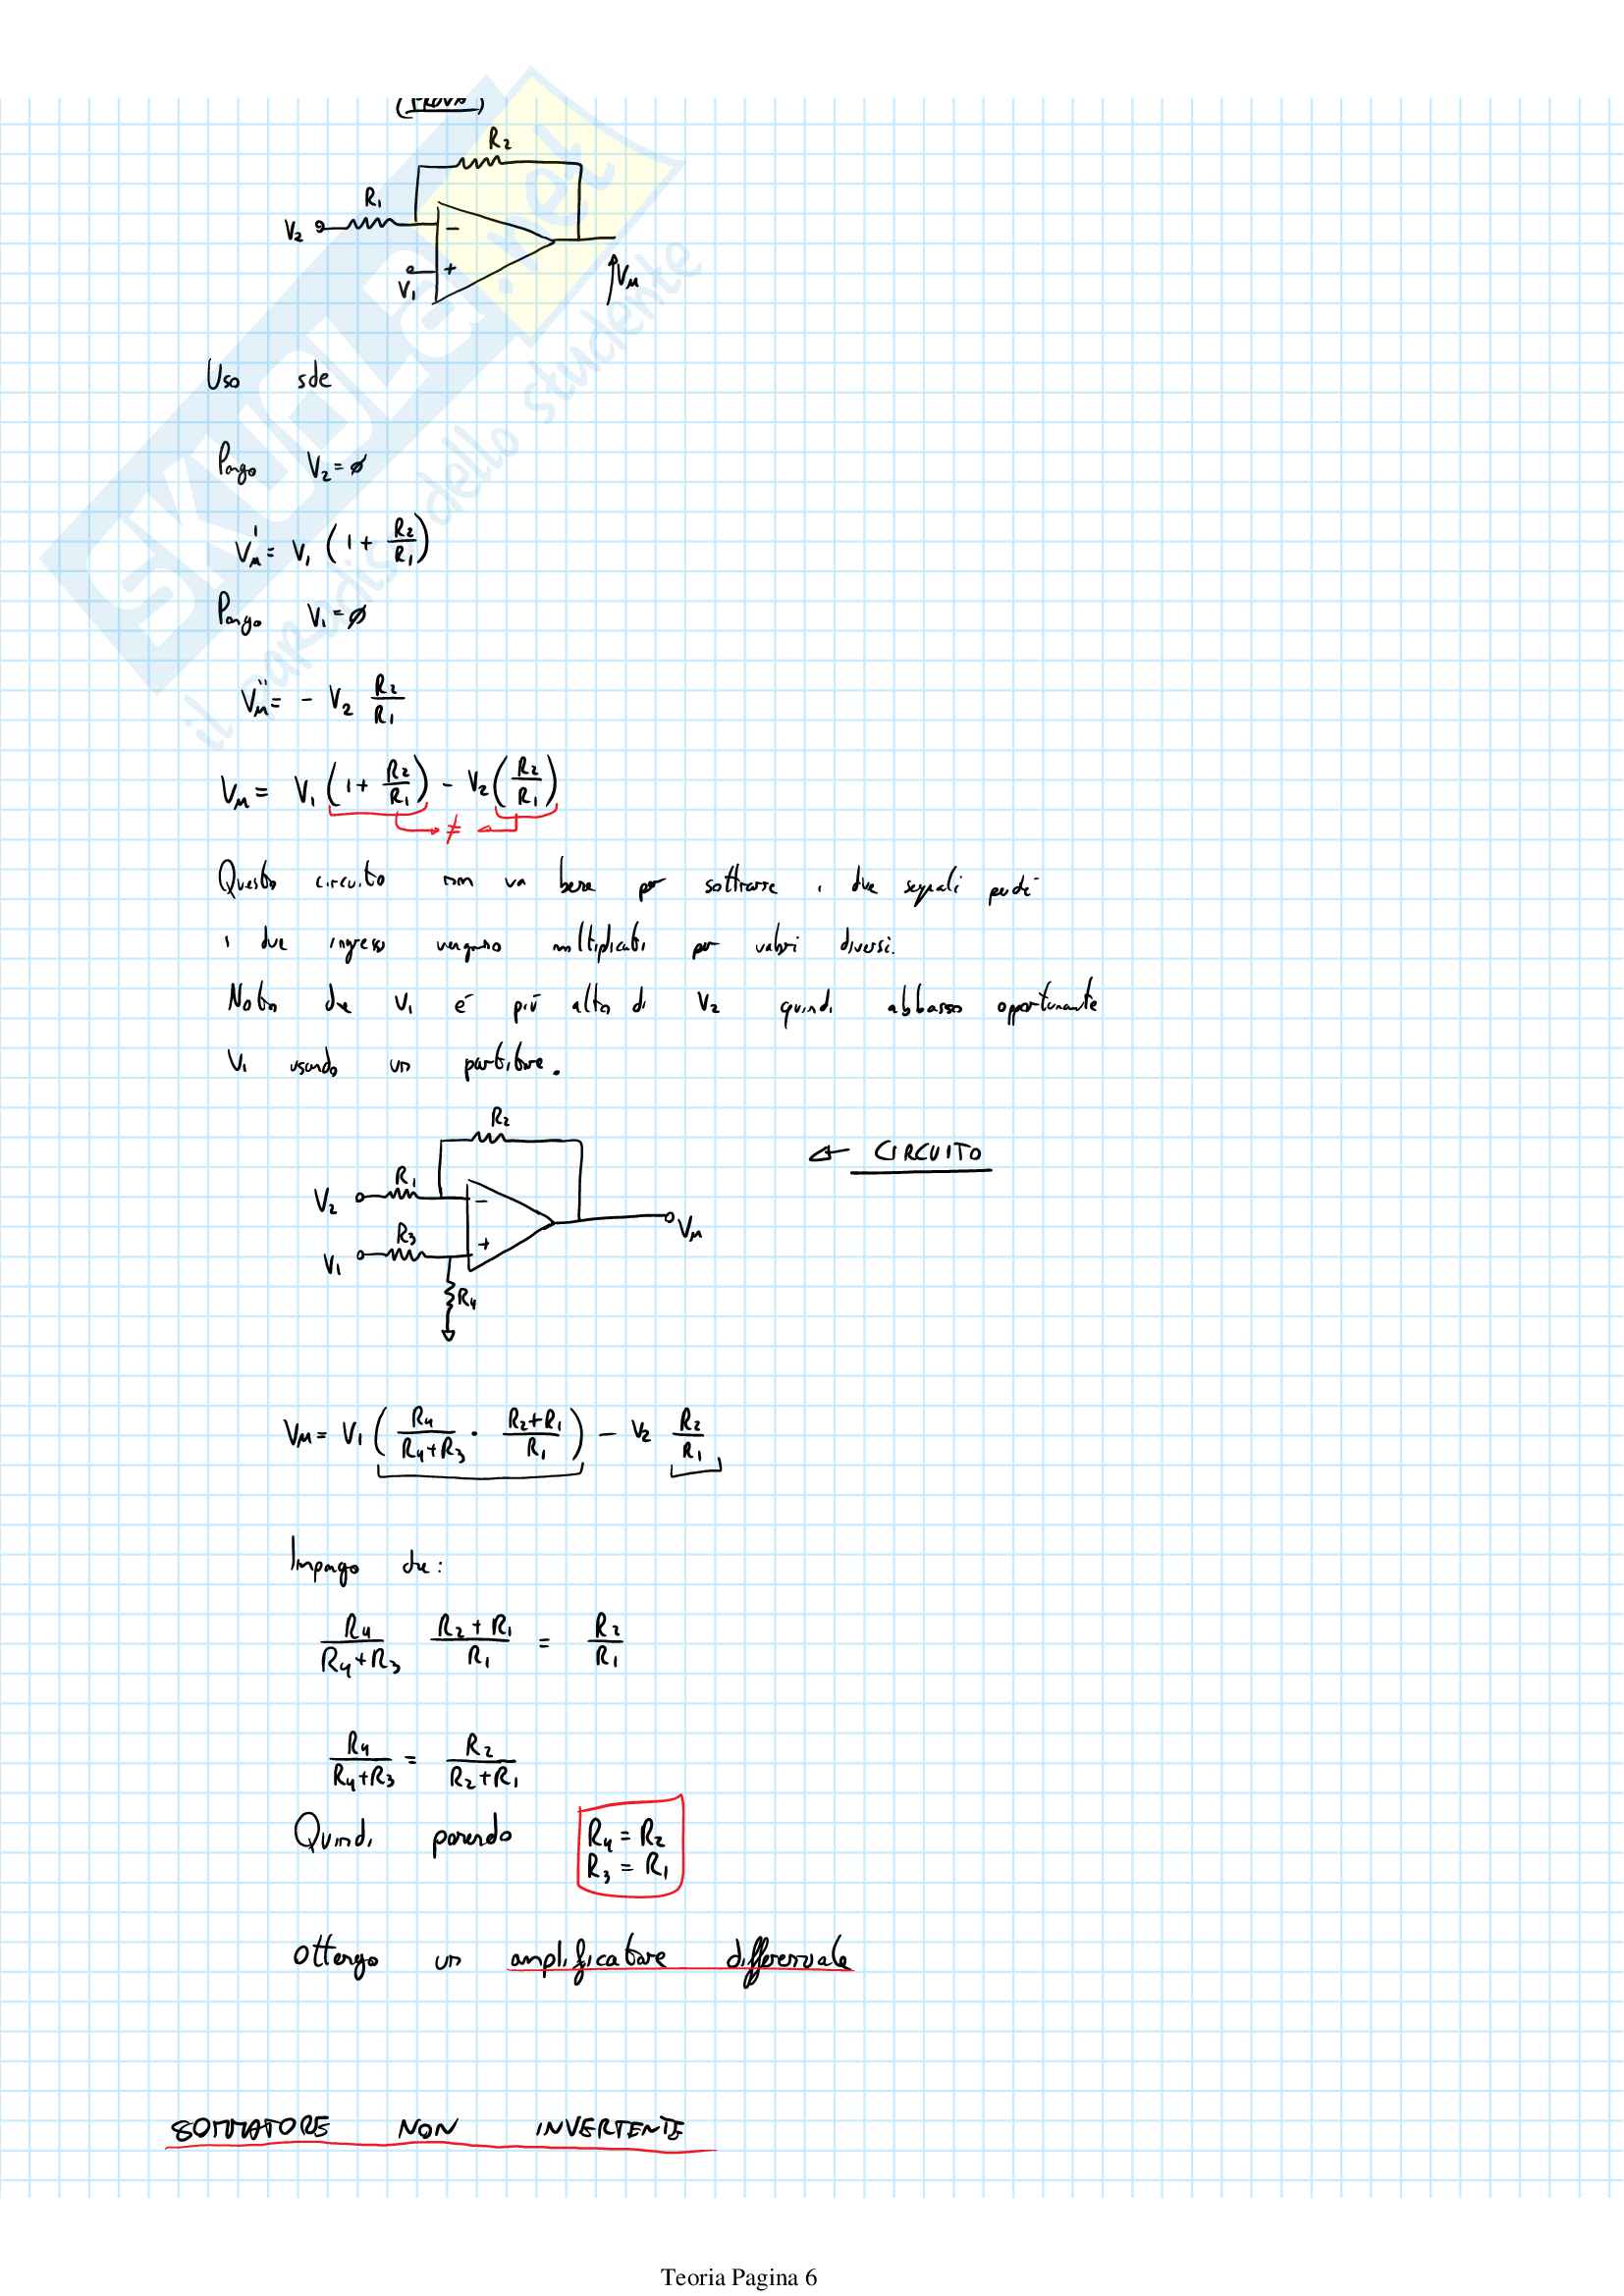 (PROVA)
R₂
R₁
V₂
−
+
V₁
Vμ
Uso sde
Pongo V₂ = ∅
Vμ' = V₁ (1 + R₂/R₁)
Pongo V₁ = ∅
Vμ'' = − V₂ R₂/R₁
Vμ = V₁ (1 + R₂/R₁) − V₂ (R₂/R₁)
≠
Questo circuito non va bene per sottrarre i due segnali perché
i due ingressi vengono moltiplicati per valori diversi.
Noto che V₁ é più alto di V₂ quindi abbasso opportunante
V₁ usando un partitore.
R₂
← CIRCUITO
R₁
V₂
−
R₃
Vμ
V₁
+
R₄
Vμ = V₁ (R₄/(R₄+R₃) · (R₂+R₁)/R₁) − V₂ R₂/R₁
Impongo che:
R₄/(R₄+R₃) (R₂+R₁)/R₁ = R₂/R₁
R₄/(R₄+R₃) = R₂/(R₂+R₁)
Quindi ponendo R₄ = R₂
R₃ = R₁
Ottengo un amplificatore differenziale
SOMMATORE NON INVERTENTE
Teoria Pagina 6
SKUOLA.net
il paradiso dello studente